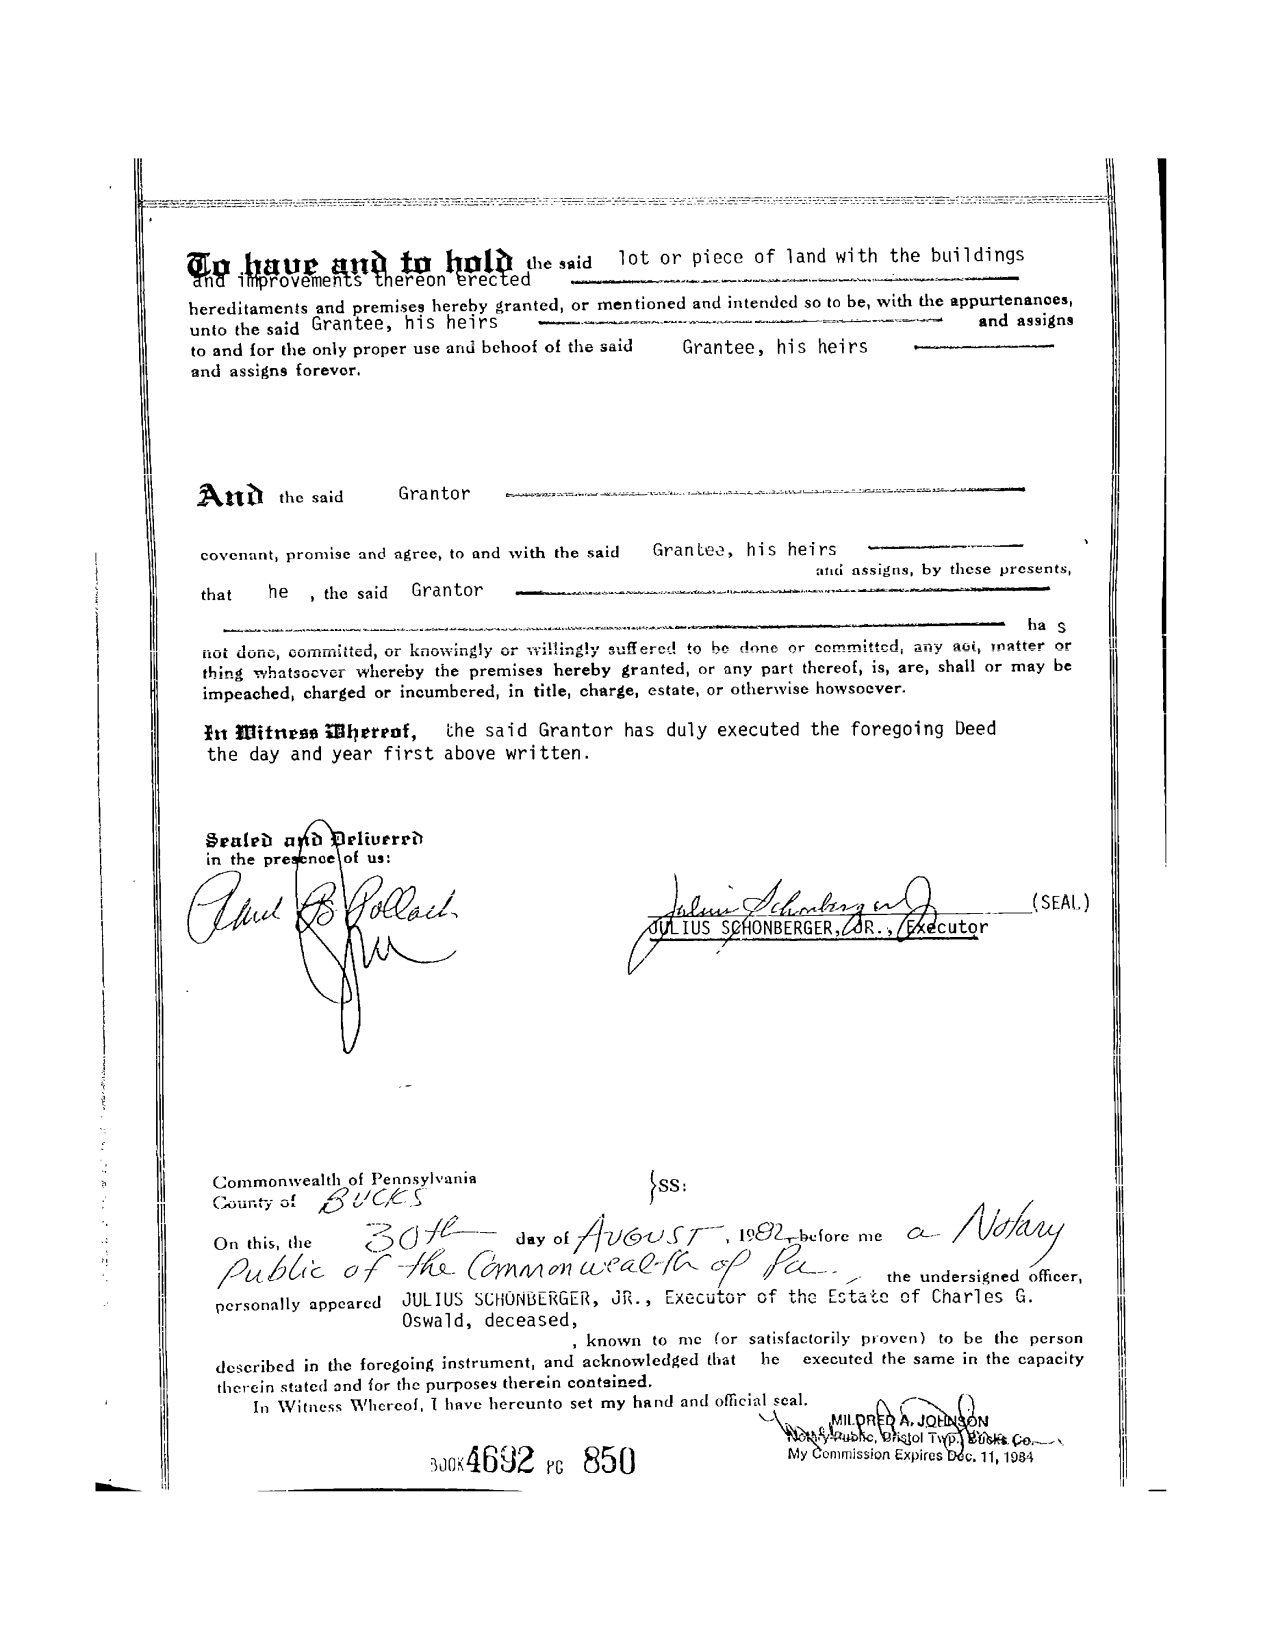 To have and to hold the said lot or piece of land with the buildings
and improvements thereon erected
hereditaments and premises hereby granted, or mentioned and intended so to be, with the appurtenances,
unto the said Grantee, his heirs and assigns
to and for the only proper use and behoof of the said Grantee, his heirs
and assigns forever.
And the said Grantor
covenant, promise and agree, to and with the said Grantee, his heirs
and assigns, by these presents,
that he , the said Grantor
ha s
not done, committed, or knowingly or willingly suffered to be done or committed, any act, matter or
thing whatsoever whereby the premises hereby granted, or any part thereof, is, are, shall or may be
impeached, charged or incumbered, in title, charge, estate, or otherwise howsoever.
In Witness Whereof, the said Grantor has duly executed the foregoing Deed
the day and year first above written.
Sealed and Delivered
in the presence of us:
Julius Schonberger Jr (SEAL)
JULIUS SCHONBERGER, JR., Executor
Commonwealth of Pennsylvania }SS:
County of BUCKS
On this, the 30th day of AUGUST, 1982, before me a Notary
Public of the Commonwealth of Pa. , the undersigned officer,
personally appeared JULIUS SCHONBERGER, JR., Executor of the Estate of Charles G.
Oswald, deceased,
, known to me (or satisfactorily proven) to be the person
described in the foregoing instrument, and acknowledged that he executed the same in the capacity
therein stated and for the purposes therein contained.
In Witness Whereof, I have hereunto set my hand and official seal.
MILDRED A. JOHNSON
Notary Public, Bristol Twp., Bucks Co.
My Commission Expires Dec. 11, 1984
BOOK 4692 PG 850